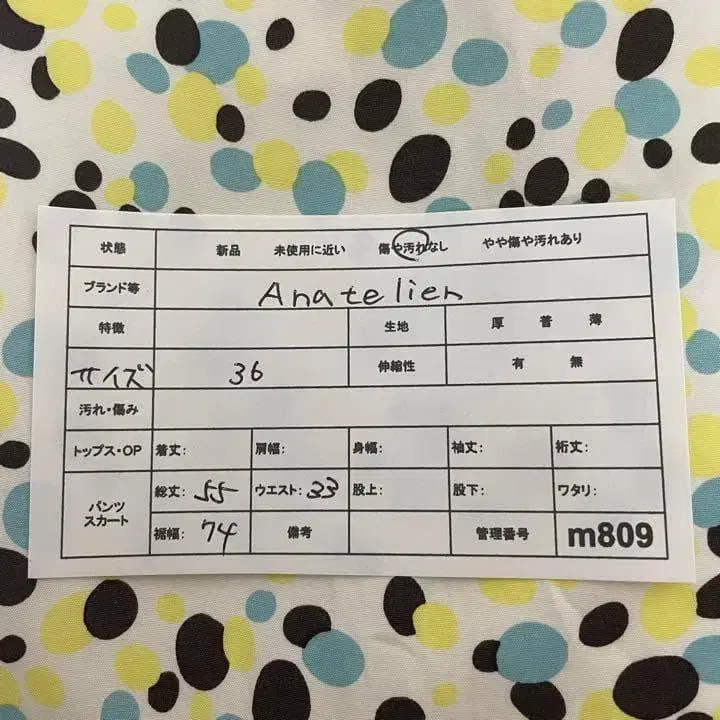 状態 新品 未使用に近い 傷や汚れなし やや傷や汚れあり
ブランド等 Anatelier
特徴 生地 厚 普 薄
サイズ 36 伸縮性 有 無
汚れ・傷み
トップス・OP 着丈: 肩幅: 身幅: 袖丈: 裄丈:
パンツ スカート 総丈: 55 ウエスト: 33 股上: 股下: ワタリ:
裾幅: 74 備考 管理番号 m809